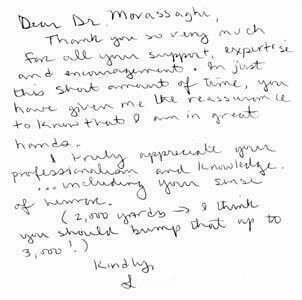 Dear Dr. Movassaghi,
Thank you so very much
for all your support, expertise
and encouragement. In just
this short amount of time, you
have given me the reassurance
to know that I am in great
hands.
I truly appreciate your
professionalism and knowledge.
...including your sense
of humor.
(2,000 yards → I think
you should bump that up to
3,000!)
Kindly,